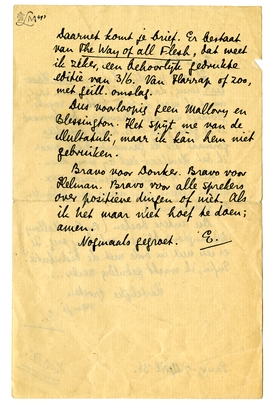 Daarnet komt je brief. Er bestaat
van The Way of all Flesh, dat weet
ik zeker, een behoorlijke gedrukte
editie van 3/6. Van Harrap of zoo,
met geïll. omslag.
Dus voorloopig geen Mallory en
Blessington. Het spijt me van de
Multatuli, maar ik kan hem niet
gebruiken.
Bravo voor Donker. Bravo voor
Helman. Bravo voor alle sprekers
over positieve dingen of niet. Als
ik het maar niet hoef te doen;
amen.
Nogmaals gegroet. E.